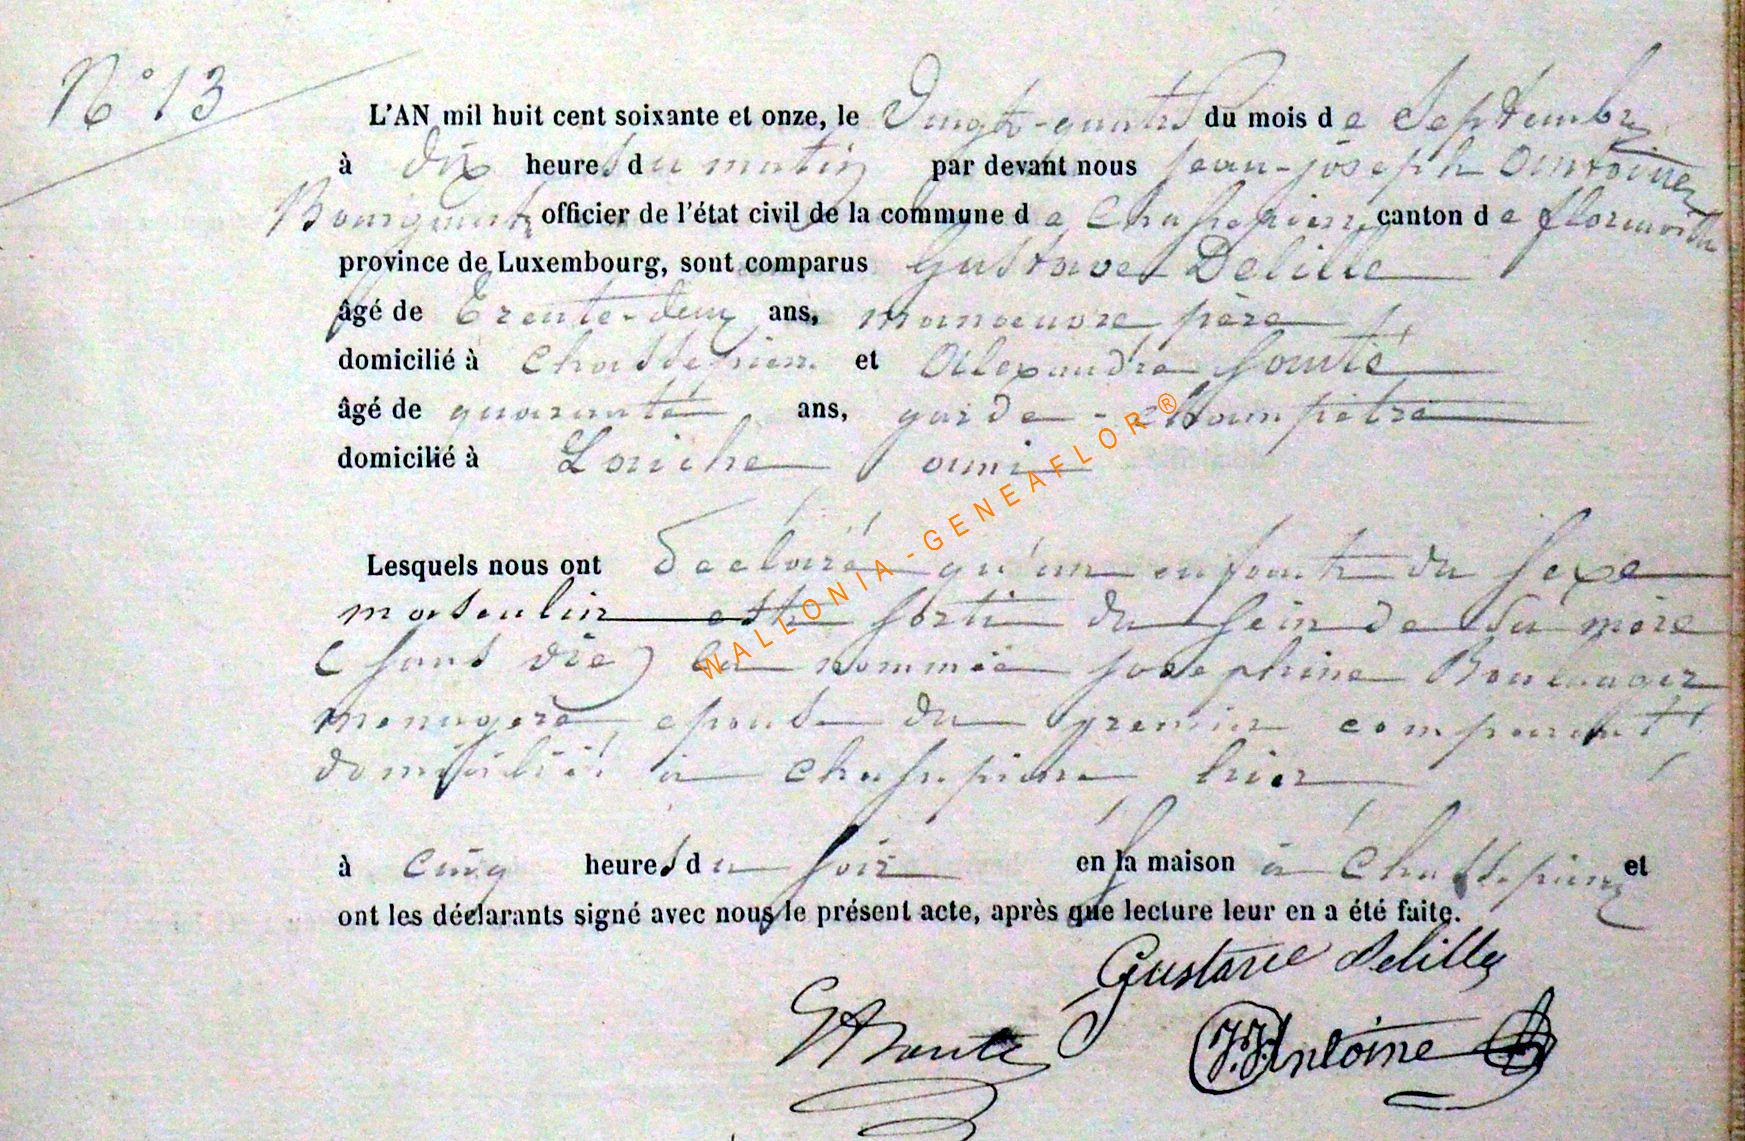 N° 13
L'AN mil huit cent soixante et onze, le Vingt-quatre du mois de Septembre
à dix heures du matin par devant nous Jean-joseph Antoine
officier de l'état civil de la commune de Chassepierre canton de florenville
province de Luxembourg, sont comparus Gustave Delille
âgé de trente-deux ans, manoeuvre père
domicilié à Chassepierre et Alexandre
âgé de quarante ans, garde-champêtre
domicilié à Laiche ami
Lesquels nous ont déclaré qu'un enfant du sexe
masculin est sorti du sein de sa mère
(sans vie) la nommée josephine Boulanger
menagère, epouse du premier comparant,
domicilié à chassepierre hier
à cinq heures du soir en sa maison à Chassepierre et
ont les déclarants signé avec nous le présent acte, après que lecture leur en a été faite.
Gustave Delille
J.J. Antoine
WALLONIA-GENEAFLOR®